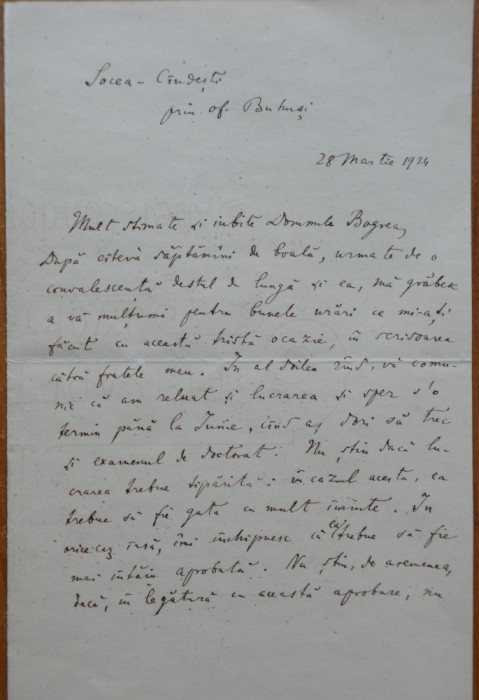 Socea – Cîndești
prin of. Buhuși
28 Martie 1924
Mult stimate și iubite Domnule Bogrea,
După cîteva săptămîni de boală, urmate de o
convalescență destul de lungă și ea, mă grăbesc
a vă mulțumi pentru bunele urări ce mi-ați
făcut cu această tristă ocazie, în scrisoarea
cătră fratele meu. In al doilea rînd, vă comu-
nic că am reluat și lucrarea și sper s'o
termin până la Iunie, cînd aș dori să trec
și examenul de doctorat. Nu știu dacă lu-
crarea trebue tipărită: în cazul acesta, ea
trebue să fie gata cu mult înainte. In
orice caz însă, îmi închipuesc că ea trebue să fie
mai întăiu aprobată. Nu știu, de asemenea,
dacă, în legătură cu această aprobare, nu